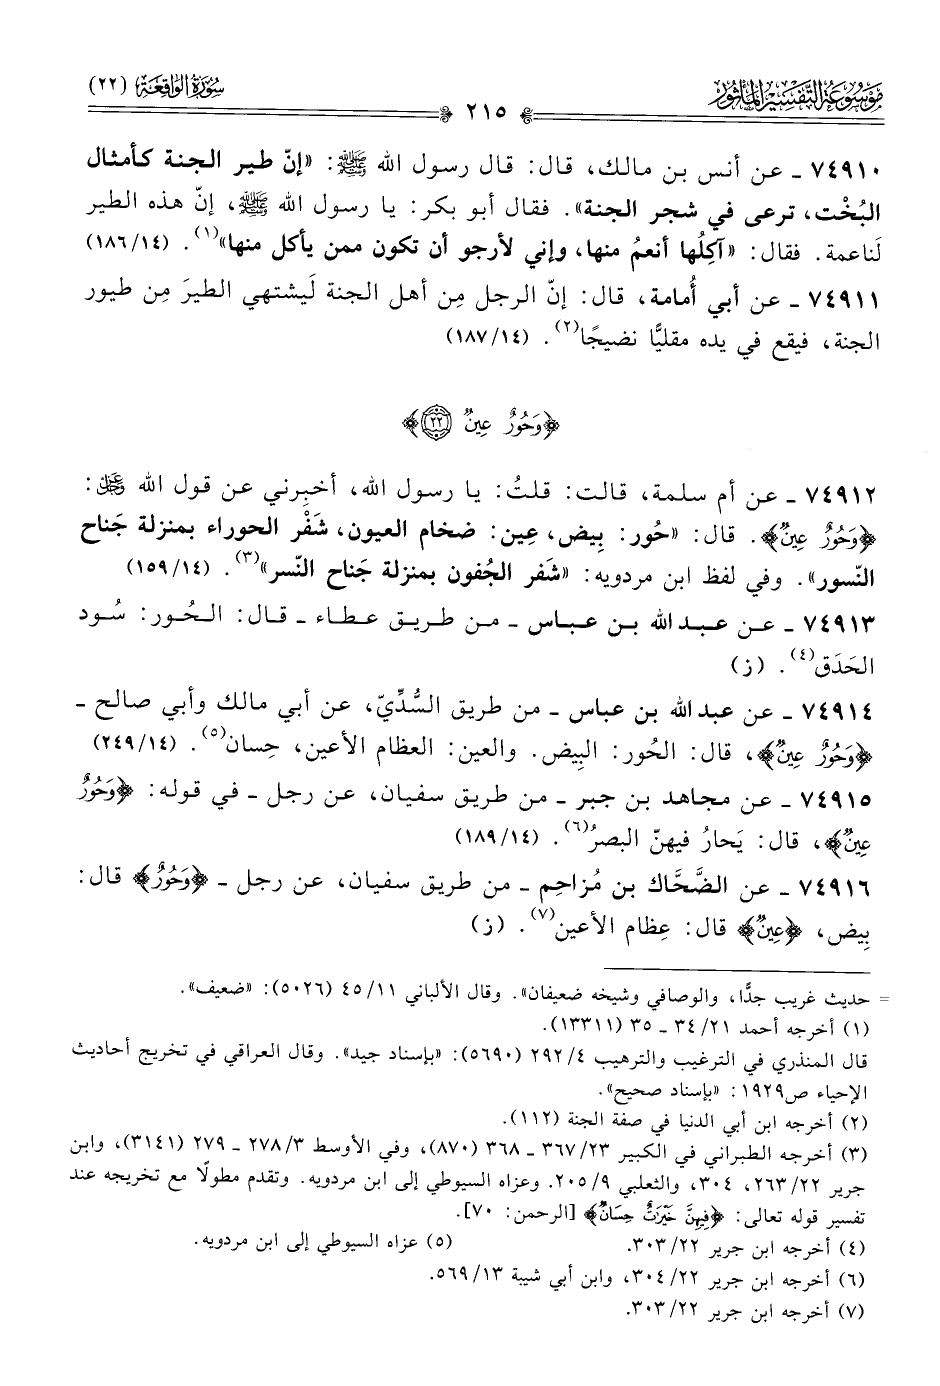 مَوْسُوعَة التَّفْسِير المَأْثُور
سُورَةُ الوَاقِعَة (٢٢)
٢١٥
٧٤٩١٠ ـ عن أنس بن مالك، قال: قال رسول الله ﷺ: «إنّ طير الجنة كأمثال
البُخْت، ترعى في شجر الجنة». فقال أبو بكر: يا رسول الله ﷺ، إنّ هذه الطير
لَناعمة. فقال: «آكِلُها أنعمُ منها، وإني لأرجو أن تكون ممن يأكل منها»(١). (١٨٦/١٤)
٧٤٩١١ ـ عن أبي أُمامة، قال: إنّ الرجل مِن أهل الجنة لَيشتهي الطيرَ مِن طيور
الجنة، فيقع في يده مقليًّا نضيجًا(٢). (١٨٧/١٤)
﴿وَحُورٌ عِينٌ ۝٢٢﴾
٧٤٩١٢ ـ عن أم سلمة، قالت: قلتُ: يا رسول الله، أخبِرني عن قول الله عزوجل:
﴿وَحُورٌ عِينٌ﴾. قال: «حُور: بِيض، عِين: ضخام العيون، شَفْر الحوراء بمنزلة جَناح
النّسور». وفي لفظ ابن مردويه: «شَفر الجُفون بمنزلة جَناح النّسر»(٣). (١٥٩/١٤)
٧٤٩١٣ ـ عن عبد الله بن عباس ـ من طريق عطاء ـ قال: الحُور: سُود
الحَدَق(٤). (ز)
٧٤٩١٤ ـ عن عبد الله بن عباس ـ من طريق السُّدِّيّ، عن أبي مالك وأبي صالح ـ
﴿وَحُورٌ عِينٌ﴾، قال: الحُور: البِيض. والعين: العظام الأعين، حِسان(٥). (٢٤٩/١٤)
٧٤٩١٥ ـ عن مجاهد بن جبر ـ من طريق سفيان، عن رجل ـ في قوله: ﴿وَحُورٌ
عِينٌ﴾، قال: يَحارُ فيهنّ البصرُ(٦). (١٨٩/١٤)
٧٤٩١٦ ـ عن الضَّحَّاك بن مُزاحِم ـ من طريق سفيان، عن رجل ـ ﴿وَحُورٌ﴾ قال:
بِيض، ﴿عِينٌ﴾ قال: عِظام الأعين(٧). (ز)
= حديث غريب جدًّا، والوصافي وشيخه ضعيفان». وقال الألباني ٤٥/١١ (٥٠٢٦): «ضعيف».
(١) أخرجه أحمد ٣٤/٢١ ـ ٣٥ (١٣٣١١).
قال المنذري في الترغيب والترهيب ٢٩٢/٤ (٥٦٩٠): «بإسناد جيد». وقال العراقي في تخريج أحاديث
الإحياء ص١٩٢٩: «بإسناد صحيح».
(٢) أخرجه ابن أبي الدنيا في صفة الجنة (١١٢).
(٣) أخرجه الطبراني في الكبير ٣٦٧/٢٣ ـ ٣٦٨ (٨٧٠)، وفي الأوسط ٢٧٨/٣ ـ ٢٧٩ (٣١٤١)، وابن
جرير ٢٦٣/٢٢، ٣٠٤، والثعلبي ٢٠٥/٩. وعزاه السيوطي إلى ابن مردويه. وتقدم مطولًا مع تخريجه عند
تفسير قوله تعالى: ﴿فِيهِنَّ خَيْرَٰتٌ حِسَانٌ﴾ [الرحمن: ٧٠].
(٤) أخرجه ابن جرير ٣٠٣/٢٢. (٥) عزاه السيوطي إلى ابن مردويه.
(٦) أخرجه ابن جرير ٣٠٤/٢٢، وابن أبي شيبة ٥٦٩/١٣.
(٧) أخرجه ابن جرير ٣٠٣/٢٢.